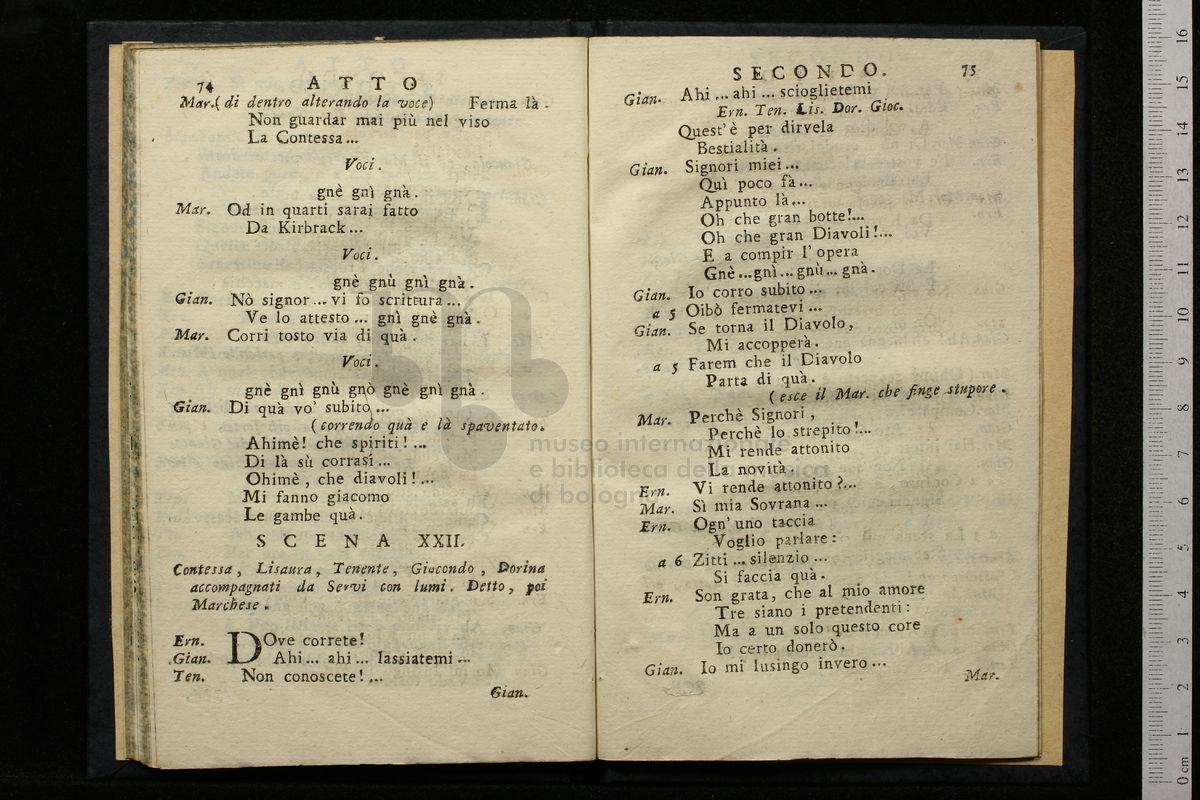 74 ATTO
Mar. (di dentro alterando la voce) Ferma là.
Non guardar mai più nel viso
La Contessa...
Voci.
gnè gnì gnà.
Mar. Od in quarti sarai fatto
Da Kirbrack...
Voci.
gnè gnù gnì gnà.
Gian. Nò signor... vi fo scrittura...
Ve lo attesto... gnì gnè gnà.
Mar. Corri tosto via di quà.
Voci.
gnè gnì gnù gnò gnè gnì gnà.
Gian. Di quà vo' subito...
(correndo quà e là spaventato.
Ahimè! che spiriti!...
Di là sù corrasi...
Ohimè, che diavoli!...
Mi fanno giacomo
Le gambe quà.
SCENA XXII.
Contessa, Lisaura, Tenente, Giocondo, Dorina
accompagnati da Servi con lumi. Detto, poi
Marchese.
Ern. DOve correte!
Gian. Ahi... ahi... lassiatemi...
Ten. Non conoscete!...
Gian.
SECONDO. 75
Gian. Ahi... ahi... scioglietemi
Ern. Ten. Lis. Dor. Gioc.
Quest'è per dirvela
Bestialità.
Gian. Signori miei...
Quì poco fà...
Appunto là...
Oh che gran botte!...
Oh che gran Diavoli!...
E a compir l'opera
Gnè...gnì...gnù... gnà.
Gian. Io corro subito...
a 5 Oibò fermatevi...
Gian. Se torna il Diavolo,
Mi accopperà.
a 5 Farem che il Diavolo
Parta di quà.
(esce il Mar. che finge stupore.
Mar. Perchè Signori,
Perchè lo strepito!...
Mi rende attonito
La novità.
Ern. Vi rende attonito?...
Mar. Sì mia Sovrana...
Ern. Ogn'uno taccia
Voglio parlare:
a 6 Zitti... silenzio...
Si faccia quà.
Ern. Son grata, che al mio amore
Tre siano i pretendenti:
Ma a un solo questo core
Io certo donerò.
Gian. Io mi lusingo invero...
Mar.
museo internazionale
e biblioteca della musica
di bologna
0 cm 1 2 3 4 5 6 7 8 9 10 11 12 13 14 15 16